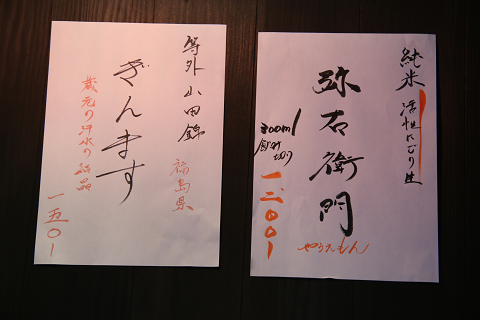 純米 活性にごり生
弥右衛門
やうえもん
300ml
飲み切り
一、二〇〇
等外 山田錦
福島県
ぎんます
蔵元の汗水の結晶
一五〇